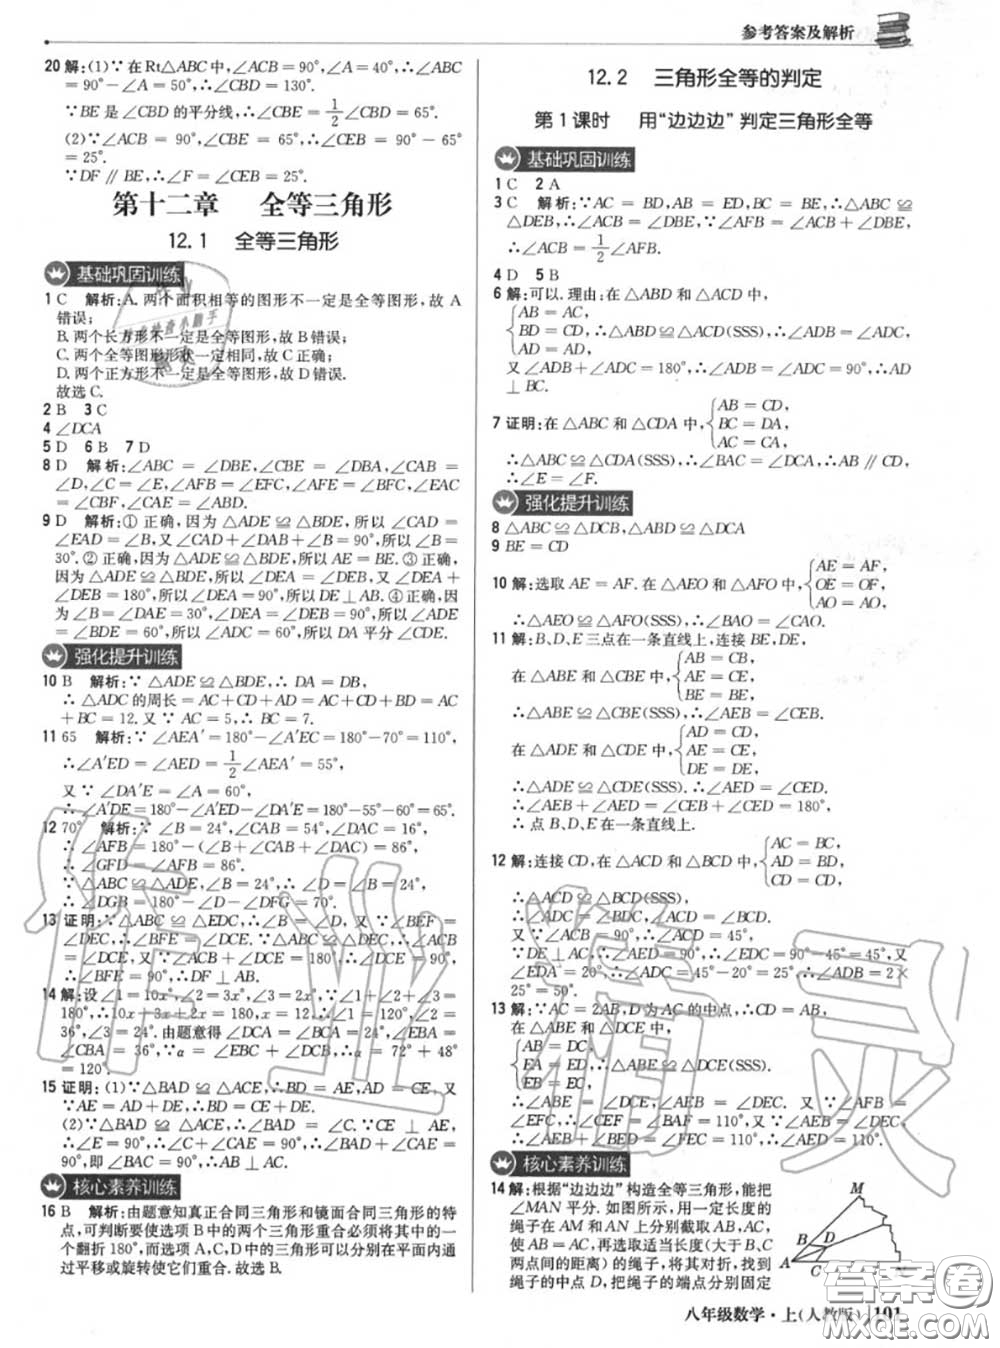 参考答案及解析
20 解:(1)∵在Rt△ABC中,∠ACB=90°,∠A=40°,∴∠ABC=
90°-∠A=50°,∴∠CBD=130°.
∵BE是∠CBD的平分线,∴∠CBE=1/2∠CBD=65°.
(2)∵∠ACB=90°,∠CBE=65°,∴∠CEB=90°-65°
=25°.
∵DF∥BE,∴∠F=∠CEB=25°.
第十二章 全等三角形
12.1 全等三角形
基础巩固训练
1 C 解析:A.两个面积相等的图形不一定是全等图形,故A
错误;
B.两个长方形不一定是全等图形,故B错误;
C.两个全等图形形状一定相同,故C正确;
D.两个正方形不一定是全等图形,故D错误.
故选C.
2 B 3 C
4 ∠DCA
5 D 6 B 7 D
8 D 解析:∠ABC=∠DBE,∠CBE=∠DBA,∠CAB=
∠D,∠C=∠E,∠AFB=∠EFC,∠AFE=∠BFC,∠EAC
=∠CBF,∠CAE=∠ABD.
9 D 解析:①正确,因为△ADE≌△BDE,所以∠CAD=
∠EAD=∠B,又∠CAD+∠DAB+∠B=90°,所以∠B=
30°.②正确,因为△ADE≌△BDE,所以AE=BE.③正确,
因为△ADE≌△BDE,所以∠DEA=∠DEB,又∠DEA+
∠DEB=180°,所以∠DEA=90°,所以DE⊥AB.④正确,
因为∠B=∠DAE=30°,∠DEA=∠DEB=90°,所以∠ADE
=∠BDE=60°,所以∠ADC=60°,所以DA平分∠CDE.
强化提升训练
10 B 解析:∵△ADE≌△BDE,∴DA=DB,
∴△ADC的周长=AC+CD+AD=AC+CD+BD=AC
+BC=12.又∵AC=5,∴BC=7.
11 65 解析:∵∠AEA′=180°-∠A′EC=180°-70°=110°,
∴∠A′ED=∠AED=1/2∠AEA′=55°,
又∵∠DA′E=∠A=60°,
∴∠A′DE=180°-∠A′ED-∠DA′E=180°-55°-60°=65°.
12 70° 解析:∵∠B=24°,∠CAB=54°,∠DAC=16°,
∴∠AFB=180°-(∠B+∠CAB+∠DAC)=86°,
∴∠GFD=∠AFB=86°.
∵△ABC≌△ADE,∠B=24°,∴∠D=∠B=24°,
∴∠DGB=180°-∠D-∠DFG=70°.
13 证明:∵△ABC≌△EDC,∴∠B=∠D.又∵∠BEF=
∠DEC,∴∠BFE=∠DCE.∵△ABC≌△DEC,∴∠ACB
=∠DCE,又∵∠ACB+∠DCE=180°,∴∠DCE=90°,
∴∠BFE=90°,∴DF⊥AB.
14 解:设∠1=10x°,∠2=3x°,∠3=2x°,∵∠1+∠2+∠3=
180°,∴10x+3x+2x=180,x=12.∴∠1=120°,∠2=
36°,∠3=24°.由题意得∠DCA=∠BCA=24°,∠EBA=
∠CBA=36°,∵∠α=∠EBC+∠DCB,∴∠α=72°+48°
=120°.
15 证明:(1)∵△BAD≌△ACE,∴BD=AE,AD=CE,又
∵AE=AD+DE,∴BD=CE+DE.
(2)∵△BAD≌△ACE,∴∠BDA=∠C.∵CE⊥AE,
∴∠E=90°,∴∠C+∠CAE=90°,∴∠BDA+∠CAE=
90°,即∠BAC=90°,∴BA⊥AC.
核心素养训练
16 B 解析:由题意知真正合同三角形和镜面合同三角形的特
点,可判断要使选项B中的两个三角形重合必须将其中的一
个翻折180°,而选项A,C,D中的三角形可以分别在平面内通
过平移或旋转使它们重合.故选B.
12.2 三角形全等的判定
第1课时 用“边边边”判定三角形全等
基础巩固训练
1 C 2 A
3 C 解析:∵AC=BD,AB=ED,BC=BE,∴△ABC≌
△DEB,∴∠ACB=∠DBE,∵∠AFB=∠ACB+∠DBE,
∴∠ACB=1/2∠AFB.
4 D 5 B
6 解:可以.理由:在△ABD和△ACD中,
AB=AC,
BD=CD,∴△ABD≌△ACD(SSS),∴∠ADB=∠ADC.
AD=AD,
又∠ADB+∠ADC=180°,∴∠ADB=∠ADC=90°,∴AD
⊥BC.
7 证明:在△ABC和△CDA中,
AB=CD,
BC=DA,
AC=CA,
∴△ABC≌△CDA(SSS),∴∠BAC=∠DCA,∴AB∥CD,
∴∠E=∠F.
强化提升训练
8 △ABC≌△DCB,△ABD≌△DCA
9 BE=CD
10 解:选取AE=AF.在△AEO和△AFO中,
AE=AF,
OE=OF,
AO=AO,
∴△AEO≌△AFO(SSS),∴∠BAO=∠CAO.
11 解:B、D、E三点在一条直线上,连接BE,DE,
在△ABE和△CBE中,
AB=CB,
AE=CE,
BE=BE,
∴△ABE≌△CBE(SSS),∴∠AEB=∠CEB.
在△ADE和△CDE中,
AD=CD,
AE=CE,
DE=DE,
∴△ADE≌△CDE(SSS),∴∠AED=∠CED.
∴∠AEB+∠AED=∠CEB+∠CED=180°,
∴点B、D、E在一条直线上.
12 解:连接CD,在△ACD和△BCD中,
AC=BC,
AD=BD,
CD=CD,
∴△ACD≌△BCD(SSS),
∴∠ADC=∠BDC,∠ACD=∠BCD.
又∵∠ACB=90°,∴∠ACD=45°,
∵DE⊥AC,∴∠DEC=90°,∴∠CDE=90°-45°=45°,又
∠EDA=20°,∴∠ADC=45°-20°=25°,∴∠ADB=2×
25°=50°.
13 解:∵AC=2AB,D为AC的中点,∴CD=AB,
在△ABE和△DCE中,
AB=DC,
EA=ED,∴△ABE≌△DCE(SSS),
EB=EC,
∴∠ABE=∠DCE,∠AEB=∠DEC.又∵∠AFB=
∠EFC,∴∠CEF=∠BAF=110°,∵∠AEB=∠DEC,
∴∠AED=∠BEC=110°.
核心素养训练
14 解:根据“边边边”构造全等三角形,能把
∠MAN平分.如图所示,用一定长度的
绳子在AM和AN上分别截取AB,AC,
使AB=AC,再选取适当长度(大于B、C
两点间的距离)的绳子,将其对折,找到
绳子的中点D,把绳子的端点分别固定
M
B
D
A
C
八年级数学·上(人教版) 101
作业精灵
答案圈